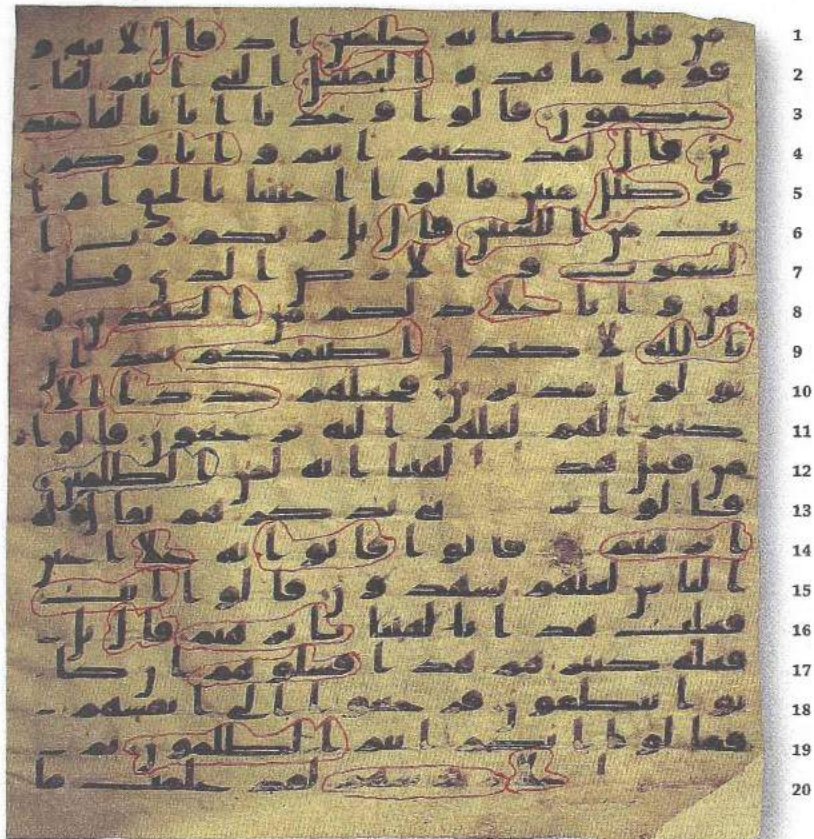 من قبل وكنا به علمين اذ قال لابيه و 1
قومه ما هذه التمثيل التي انتم لها 2
عكفون قالوا وجدنا ابانا لها عبد 3
ين قال لقد كنتم انتم واباوكم 4
في ضلل مبين قالوا اجئتنا بالحق ام ا 5
نت من اللعبين قال بل ربكم رب ا 6
لسموت والارض الذي فطر 7
هن وانا علا ذلكم من الشهدين و 8
تالله لاكيدن اصنمكم بعد ان 9
تولوا مدبرين فجعلهم جذذا الا 10
كبيرا لهم لعلهم اليه يرجعون قالوا 11
من فعل هذ لهتنا انه لمن الظلمين 12
قالوا يذكرهم يقال له 13
ابرهيم قالوا فاتوا به علا اعين 14
الناس لعلهم يشهدون قالوا انت 15
فعلت هذا بالهتنا يابرهيم قال بل 16
فعله كبيرهم هذا فسلوهم ان كا 17
نوا ينطقون فرجعوا الى انفسهم 18
فقالوا انكم انتم الظلمون ثم 19
علا روسهم لقد علمت ما 20